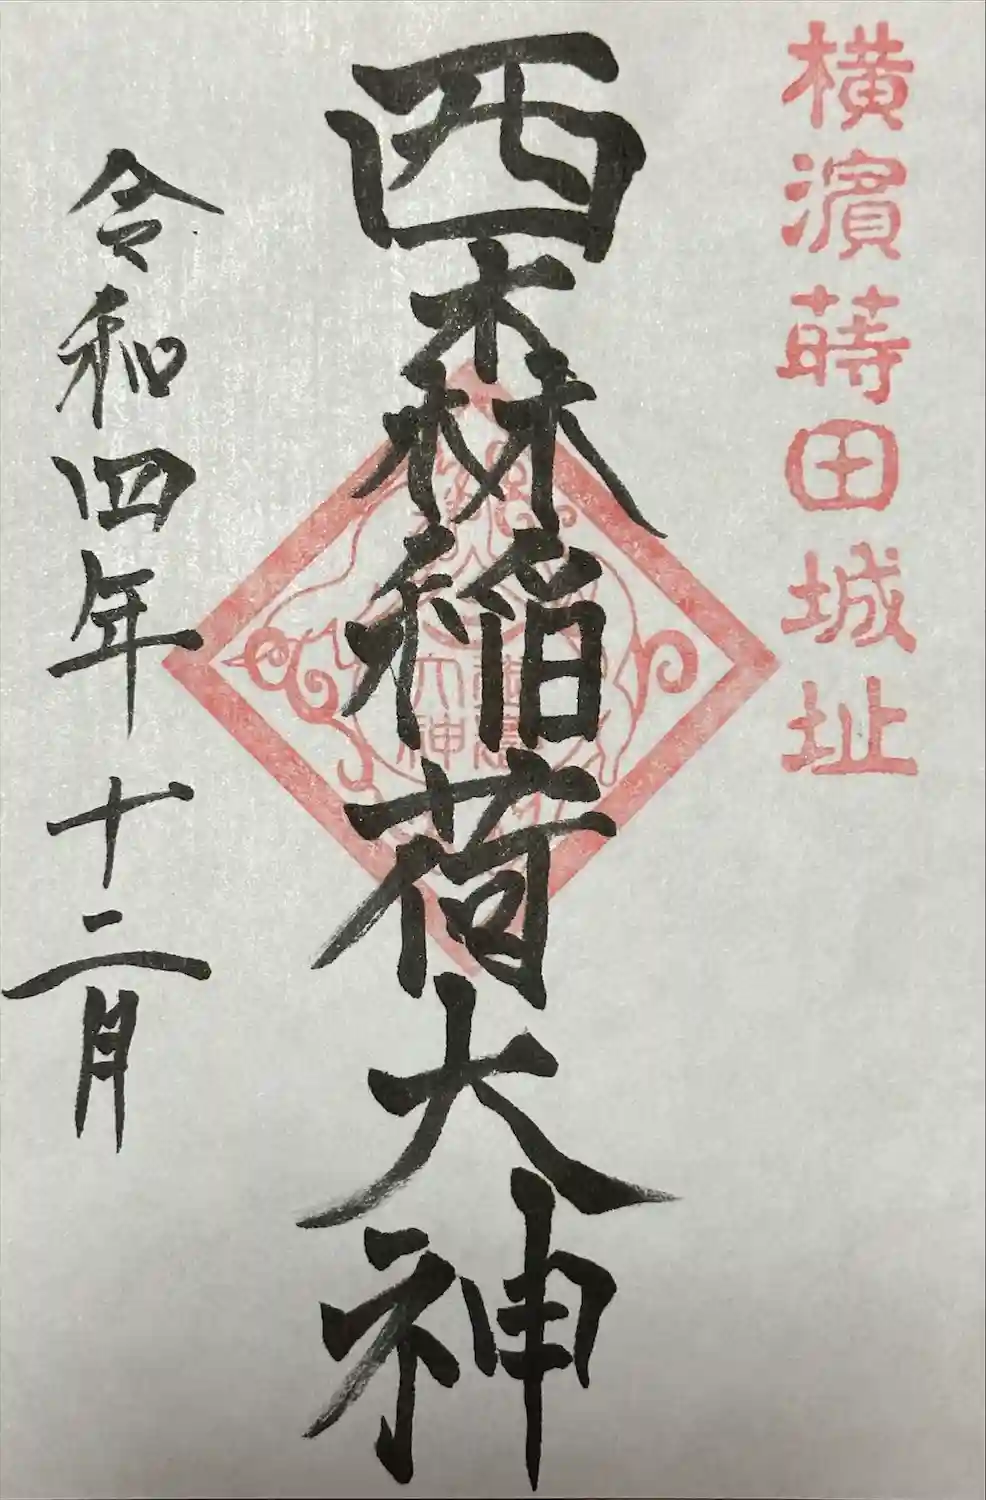 横濱蒔田城址
西森稲荷大神
大神
令和四年十二月